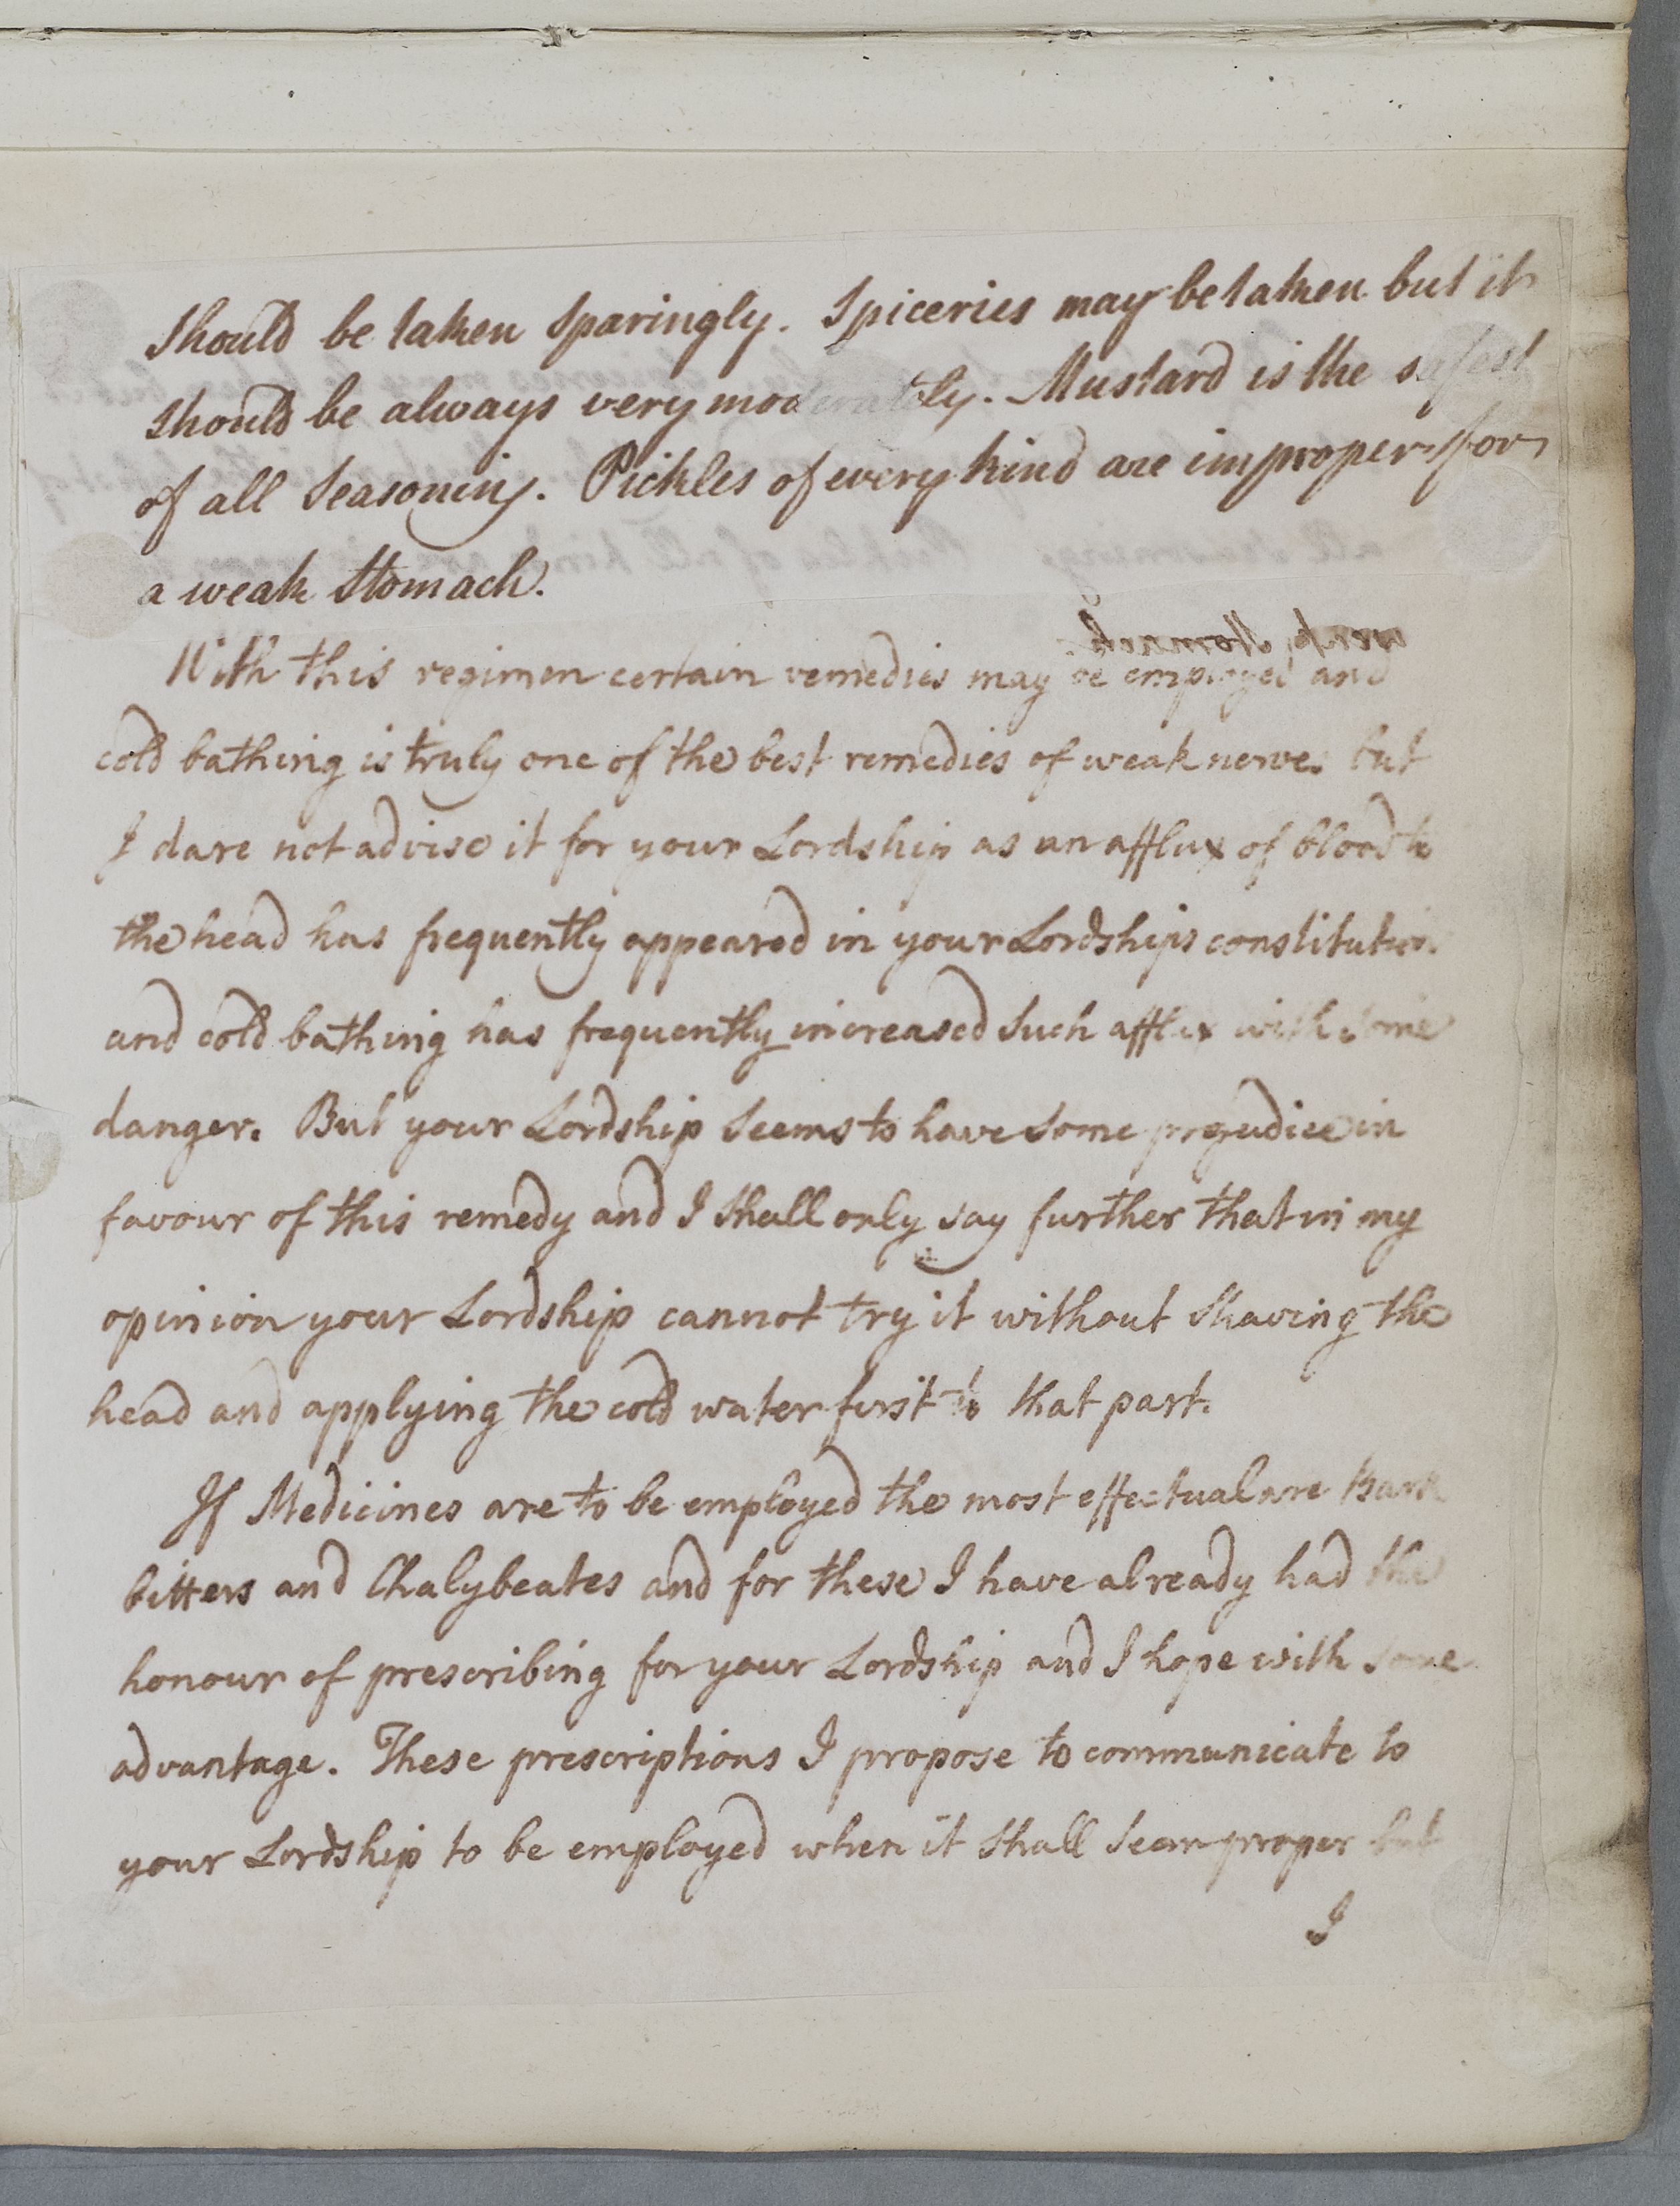 should be taken Sparingly. Spiceries may be taken but it
should be always very moderately. Mustard is the safest
of all Seasoning. Pickles of every kind are improper for
a weak Stomach.
weak Stomach.
With this regimen certain remedies may be employed and
cold bathing is truly one of the best remedies of weak nerves but
I dare not advise it for your Lordship as an afflux of blood to
the head has frequently appeared in your Lordships constitution
and cold bathing has frequently increased such afflux with some
danger. But your Lordship seems to have some prejudice in
favour of this remedy and I shall only say further that in my
opinion your Lordship cannot try it without shaving the
head and applying the cold water first to that part.
If Medicines are to be employed the most effectual are Bark
bitters and Chalybeates and for these I have already had the
honour of prescribing for your Lordship and I hope with some
advantage. These prescriptions I propose to communicate to
your Lordship to be employed when it shall seem proper but
I